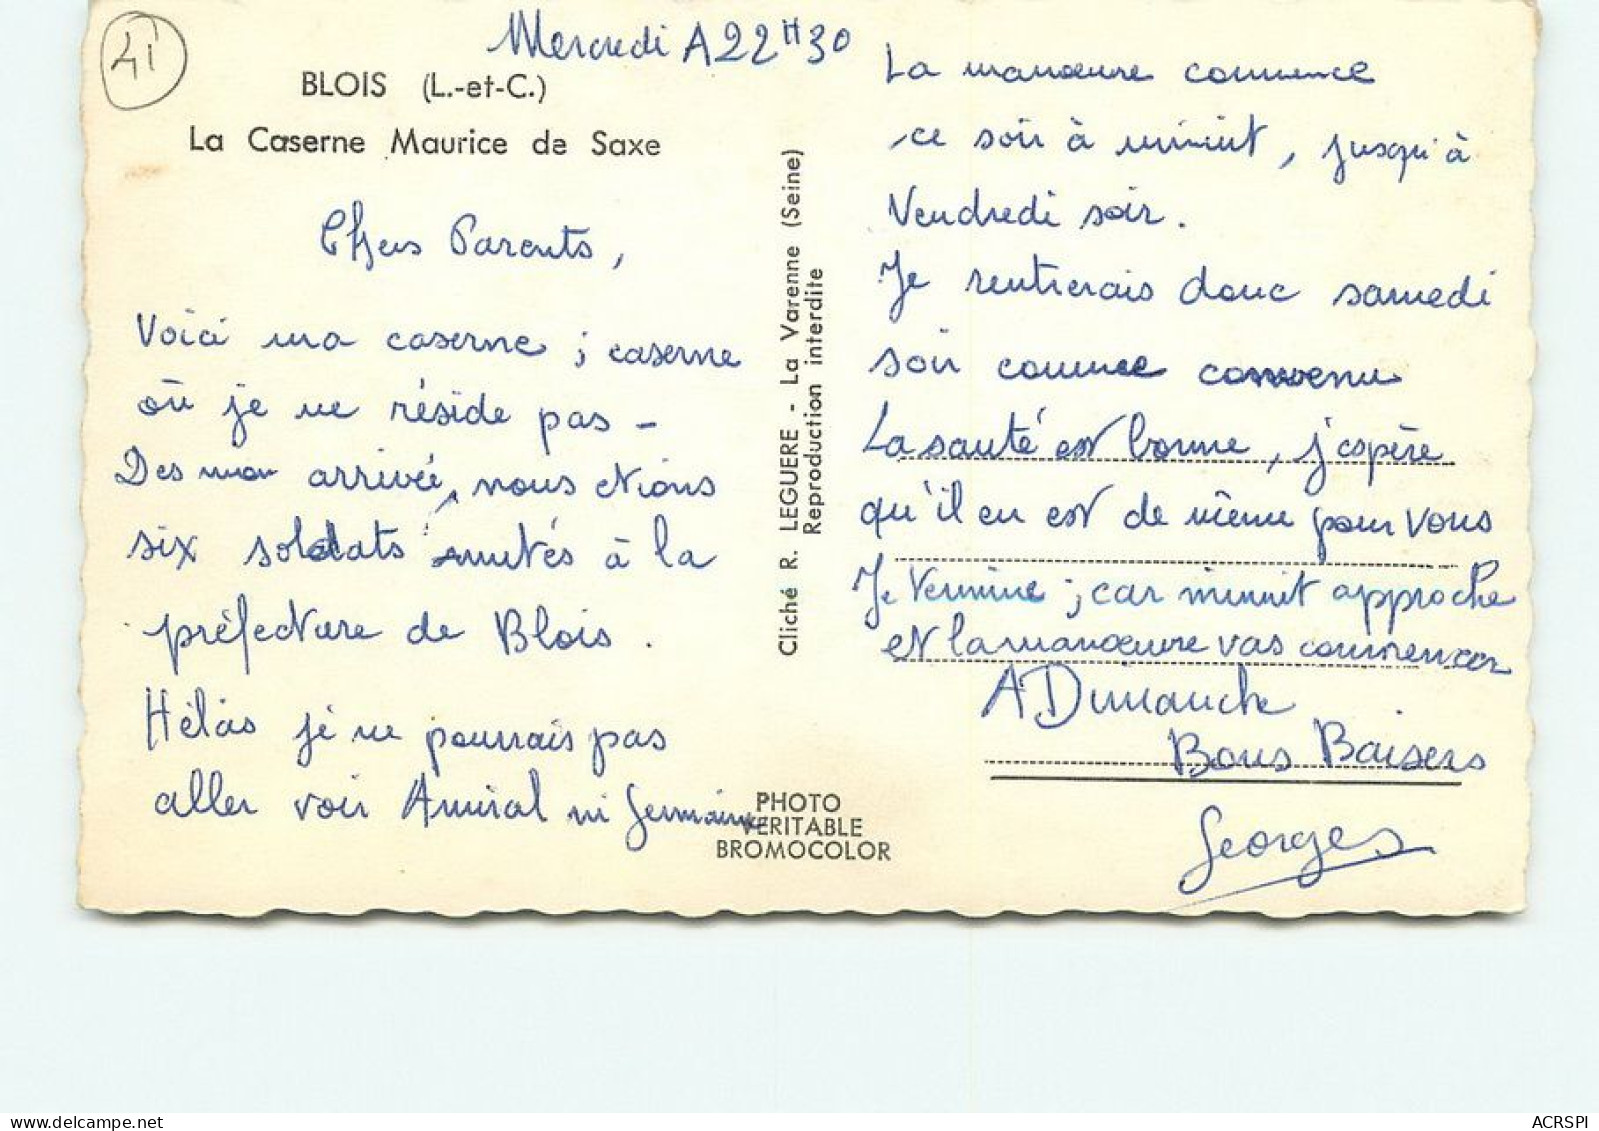 41
Mercredi A 22 H 30
BLOIS (L.-et-C.)
La Caserne Maurice de Saxe
Chers Parents,
Voici ma caserne ; caserne
où je ne réside pas -
Des mon arrivée, nous etions
six soldats mutés à la
préfecture de Blois .
Hélas je ne pourrais pas
aller voir Amiral ni Germaine
PHOTO
VERITABLE
BROMOCOLOR
Cliché R. LEGUERE - La Varenne (Seine)
Reproduction interdite
La manœuvre commence
ce soir à minuit, jusqu'à
Vendredi soir.
Je rentrerais donc samedi
soir comme convenu
La santé est bonne, j'espère
qu'il en est de même pour vous
Je termine ; car minuit approche
et la manœuvre vas commencer
A Dimanche
Bons Baisers
Georges
ACRSPI